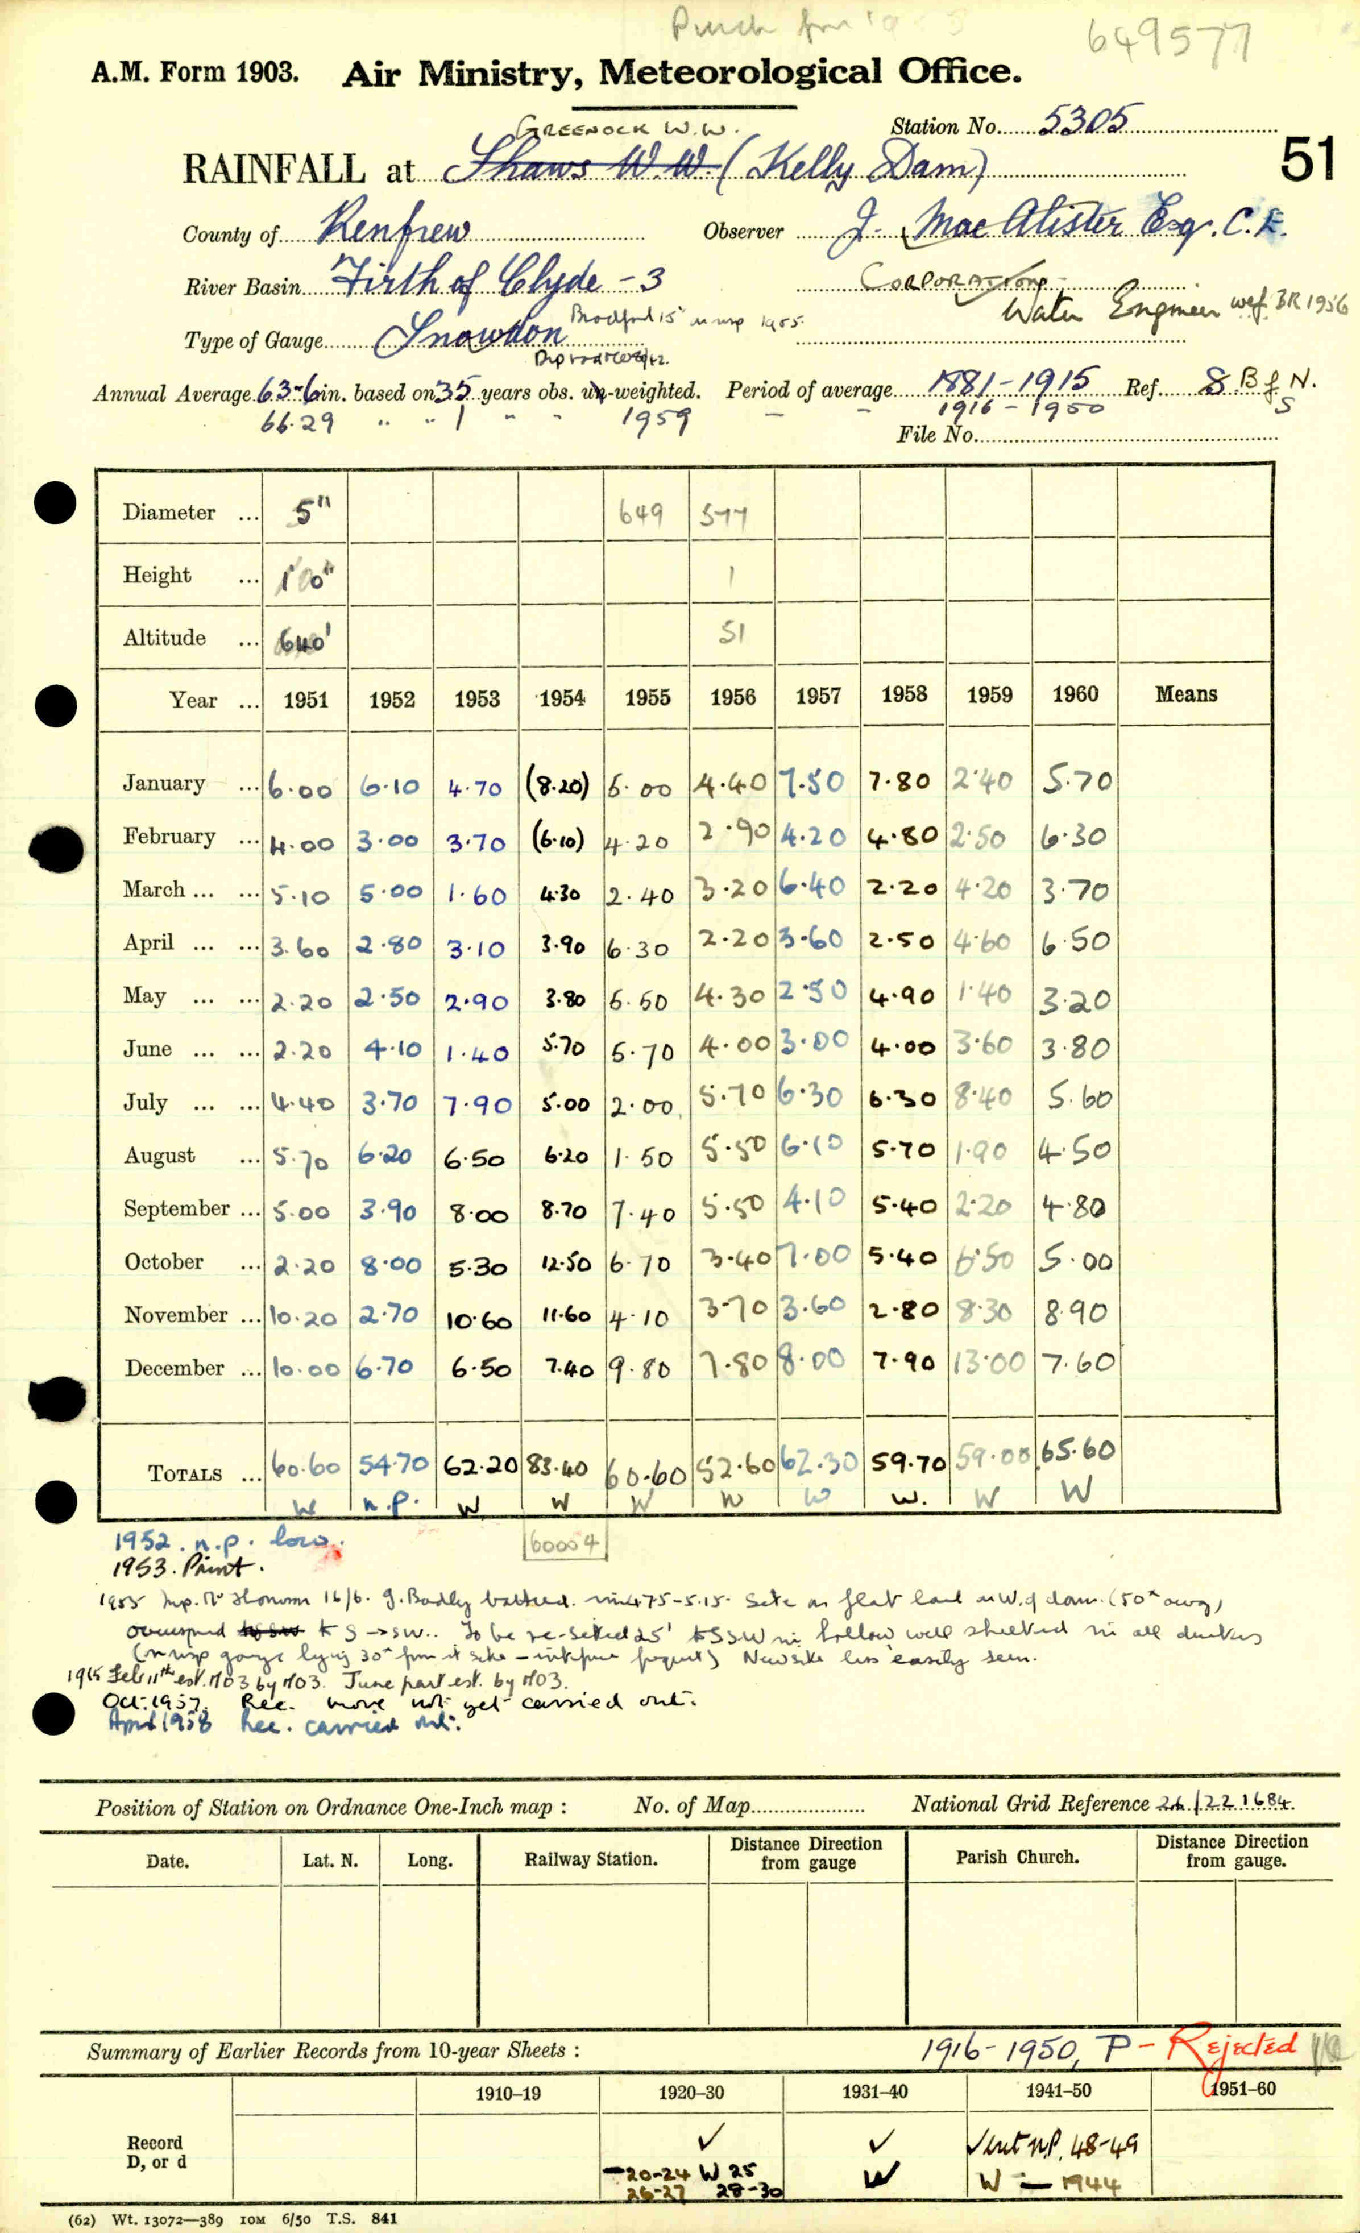 Punch for
649577
A.M. Form 1903. Air Ministry, Meteorological Office.
Station No. 5305
GREENOCK W.W.
51
RAINFALL at Shaws W.W. (Kelly Dam)
County of Renfrew Observer J. MacAlister Esq. C.E.
River Basin Firth of Clyde - 3 CORPORATION
Water Engineer wef. BR 1956
Type of Gauge Snowdon Bradford 15" in insp 1955.
Annual Average 63.6 in. based on 35 years obs. un-weighted. Period of average 1881-1915 Ref. S. B of N. S
66.29 " " 1 " " 1959 - - 1916-1950
File No.
Diameter ... 5" 649 577
Height ... 1'0" 1
Altitude ... 640' 51
Year ... 1951 1952 1953 1954 1955 1956 1957 1958 1959 1960 Means
January ... 6.00 6.10 4.70 (8.20) 5.00 4.40 7.50 7.80 2.40 5.70
February ... 4.00 3.00 3.70 (6.10) 4.20 2.90 4.20 4.80 2.50 6.30
March ... ... 5.10 5.00 1.60 4.30 2.40 3.20 6.40 2.20 4.20 3.70
April ... ... 3.60 2.80 3.10 3.90 6.30 2.20 3.60 2.50 4.60 6.50
May ... ... 2.20 2.50 2.90 3.80 5.50 4.30 2.50 4.90 1.40 3.20
June ... ... 2.20 4.10 1.40 5.70 5.70 4.00 3.00 4.00 3.60 3.80
July ... ... 4.40 3.70 7.90 5.00 2.00 5.70 6.30 6.30 8.40 5.60
August ... 5.70 6.20 6.50 6.20 1.50 5.50 6.10 5.70 1.90 4.50
September ... 5.00 3.90 8.00 8.70 7.40 5.50 4.10 5.40 2.20 4.80
October ... 2.20 8.00 5.30 12.50 6.70 3.40 7.00 5.40 6.50 5.00
November ... 10.20 2.70 10.60 11.60 4.10 3.70 3.60 2.80 8.30 8.90
December ... 10.00 6.70 6.50 7.40 9.80 7.80 8.00 7.90 13.00 7.60
TOTALS ... 60.60 54.70 62.20 83.40 60.60 52.60 62.30 59.70 59.00 65.60
W n.p. W W W W W W. W W
1952. n.p. low.
60004
1953. Print.
1955 Insp. 16/6. g. Badly battered. 4.75-5.15. Site on flat land W. of dam. (50" away)
overexposed to S → SW.. To be re-sited 25' to SSW in hollow well sheltered in all directions
(gauge lying 30" from it site - ) New site less easily seen.
Feb 11th est. 1103 by 1103. June part est. by 1103.
Oct. 1957. Rec. move not yet carried out.
April 1958 Rec. carried out.
Position of Station on Ordnance One-Inch map : No. of Map National Grid Reference 26/221684
Date. Lat. N. Long. Railway Station. Distance Direction from gauge Parish Church. Distance Direction from gauge.
Summary of Earlier Records from 10-year Sheets : 1916-1950, P - Rejected
1910–19 1920–30 1931–40 1941–50 1951–60
Record ✓ ✓ ✓ n.p. 48-49
D, or d -20-24 W 25 W W - 1944
26-27 28-30
(62) Wt. 13072—389 10M 6/50 T.S. 841